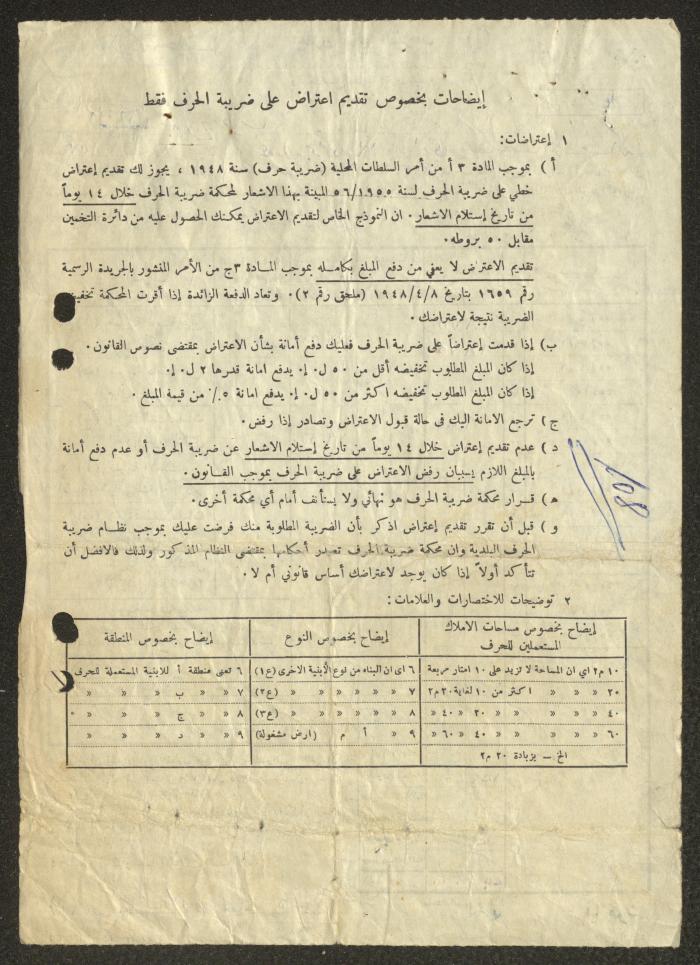 إيضاحات بخصوص تقديم اعتراض على ضريبة الحرف فقط
١ إعتراضات:
أ) بموجب المادة ٣ أ من أمر السلطات المحلية (ضريبة حرف) سنة ١٩٤٨ ، يجوز لك تقديم إعتراض
خطي على ضريبة الحرف لسنة ٥٦/١٩٥٥ المبينة بهذا الاشعار لمحكمة ضريبة الحرف خلال ١٤ يوماً
من تاريخ إستلام الأشعار. ان النموذج الخاص لتقديم الاعتراض يمكنك الحصول عليه من دائرة التخمين
مقابل ٥٠ بروطه.
تقديم الاعتراض لا يعفي من دفع المبلغ بكامله بموجب المادة ٣ج من الأمر المنشور بالجريدة الرسمية
رقم ١٦٥٩ بتاريخ ١٩٤٨/٤/٨ (ملحق رقم ٢). وتعاد الدفعة الزائدة إذا أقرت المحكمة تخفيض
الضريبة نتيجة لاعتراضك.
ب) إذا قدمت إعتراضاً على ضريبة الحرف فعليك دفع أمانة بشأن الاعتراض بمقتضى نصوص القانون.
إذا كان المبلغ المطلوب تخفيضه أقل من ٥٠ ل. إ. يدفع امانة قدرها ٢ ل. إ.
إذا كان المبلغ المطلوب تخفيضه اكثر من ٥٠ ل. إ. يدفع امانة ٥٪ من قيمة المبلغ.
ج) ترجع الامانة اليك في حالة قبول الاعتراض وتصادر إذا رفض.
د) عدم تقديم إعتراض خلال ١٤ يوماً من تاريخ إستلام الاشعار عن ضريبة الحرف أو عدم دفع أمانة
بالمبلغ اللازم يسببان رفض الاعتراض على ضريبة الحرف بموجب القانون.
ه) قرار محكمة ضريبة الحرف هو نهائي ولا يستأنف أمام أي محكمة أخرى.
و) قبل أن تقرر تقديم إعتراض اذكر بأن الضريبة المطلوبة منك فرضت عليك بموجب نظام ضريبة
الحرف البلدية وان محكمة ضريبة الحرف تصدر أحكامها بمقتضى النظام المذكور ولذلك فالافضل أن
تتأكد أولاً إذا كان يوجد لاعتراضك أساس قانوني أم لا.
108
٢ توضيحات للاختصارات والعلامات:
إيضاح بخصوص مساحات الاملاك المستعملين للحرف
إيضاح بخصوص النوع
إيضاح بخصوص المنطقة
١٠ م٢ اي ان المساحة لا تزيد على ١٠ امتار مربعة
٦ اى ان البناء من نوع الأبنية الاخرى (ع١)
٦ تعنى منطقة أ للابنية المستعملة للحرف
٢٠ » » » اكثر من ١٠ لغاية ٢٠ م٢
٧ » » » » » » (ع٢)
٧ » » ب » » »
٤٠ » » » » » ٢٠ » ٤٠ »
٨ » » » » » » (ع٣)
٨ » » ج » » »
٦٠ » » » » » ٤٠ » ٦٠ »
٩ » أ م (ارض مشغولة)
٩ » » د » » »
الخ – بزيادة ٢٠ م٢